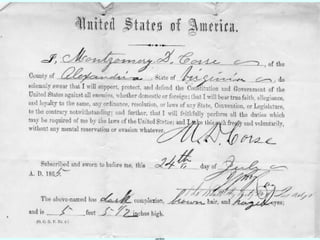 United States of America.
I, Montgomery D. Corse, of the
County of Alexandria State of Virginia, do
solemnly swear that I will support, protect, and defend the Constitution and Government of the
United States against all enemies, whether domestic or foreign; that I will bear true faith, allegiance,
and loyalty to the same, any ordinance, resolution, or laws of any State, Convention, or Legislature,
to the contrary notwithstanding; and further, that I will faithfully perform all the duties which
may be required of me by the laws of the United States; and I take this oath freely and voluntarily,
without any mental reservation or evasion whatever.
M. D. Corse
Subscribed and sworn to before me, this 24th day of July
A. D. 1865
The above-named has dark complexion, brown hair, and hazel eyes;
and is 5 feet 5 1/2 inches high.